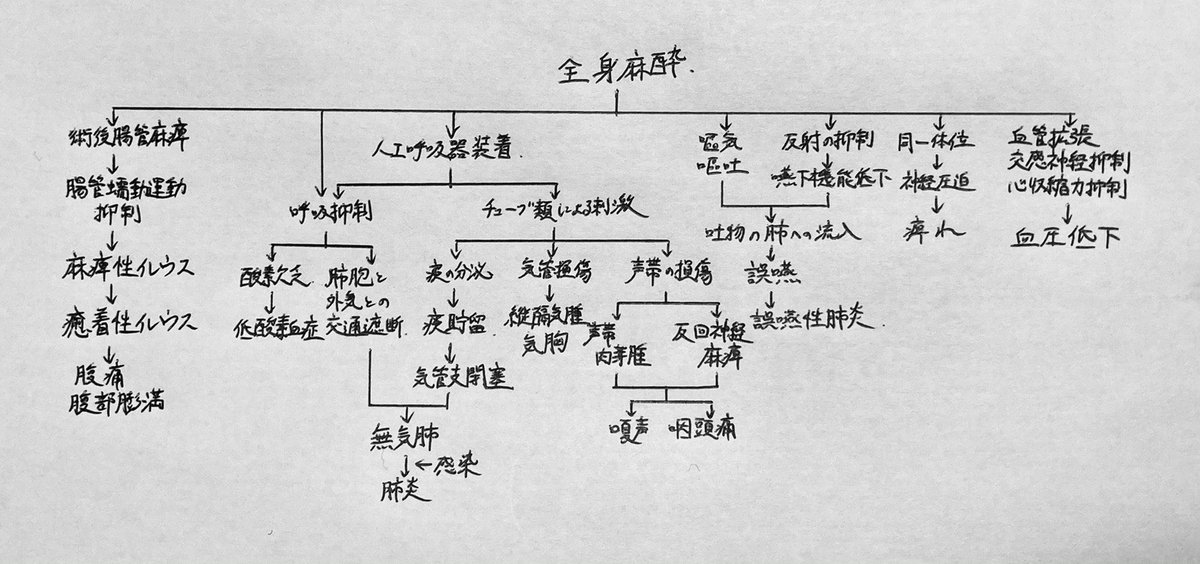 全身麻酔.
術後腸管麻痺
腸管蠕動運動
抑制
麻痺性イレウス
癒着性イレウス
腹痛
腹部膨満
人工呼吸器装着.
呼吸抑制
酸素欠乏
低酸素血症
肺胞と
外気との
交通遮断.
チューブ類による刺激
痰の分泌
痰貯留
気管支閉塞
無気肺
←感染
肺炎
気管損傷
縦隔気腫
気胸
声帯の損傷
声帯
肉芽腫
反回神経
麻痺
嗄声
咽頭痛
嘔気
嘔吐
反射の抑制
嚥下機能低下
吐物の肺への流入
誤嚥
誤嚥性肺炎.
同一体位
神経圧迫
痺れ
血管拡張
交感神経抑制
心収縮力抑制
血圧低下